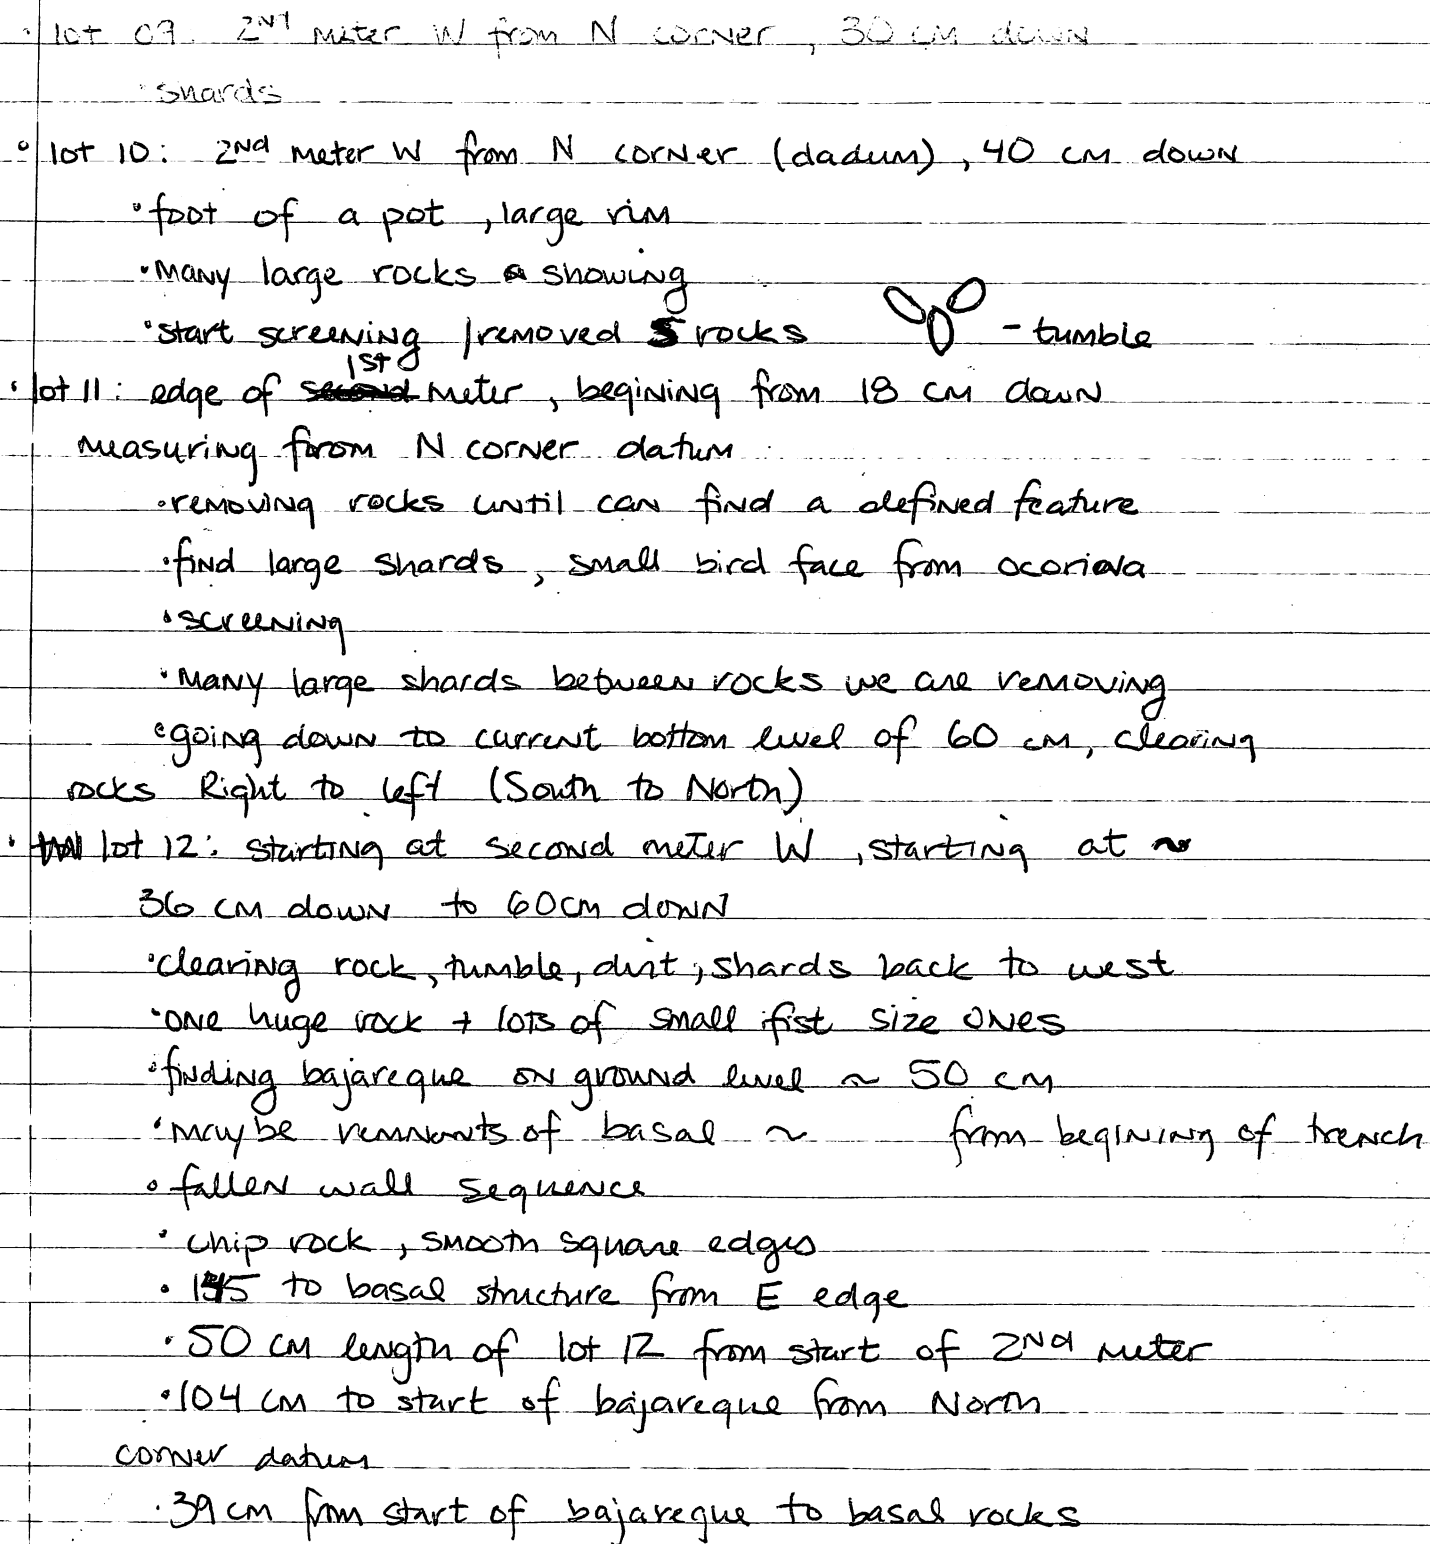 · lot 09: 2nd meter W from N corner, 30 cm down
· shards
· lot 10: 2nd meter W from N corner (dadum), 40 cm down
· foot of a pot, large rim
· Many large rocks showing
· start screening / removed 5 rocks - tumble
1st
· lot 11: edge of second meter, begining from 18 cm down
measuring from N corner datum
· removing rocks until can find a defined feature
· find large shards, small bird face from
· screening
· Many large shards between rocks we are removing
· going down to current bottom level of 60 cm, clearing
rocks Right to left (South to North)
· lot 12: starting at second meter W, starting at ~
36 cm down to 60cm down
· clearing rock, tumble, dirt, shards back to west
· one huge rock + lots of small fist size ones
· finding bajareque on ground level ~ 50 cm
· maybe remnants of basal ~ from begining of trench
· fallen wall sequence
· chip rock, smooth square edges
· to basal structure from E edge
· 50 cm length of lot 12 from start of 2nd meter
· 104 cm to start of bajareque from North
corner datum
· 39 cm from start of bajareque to basal rocks